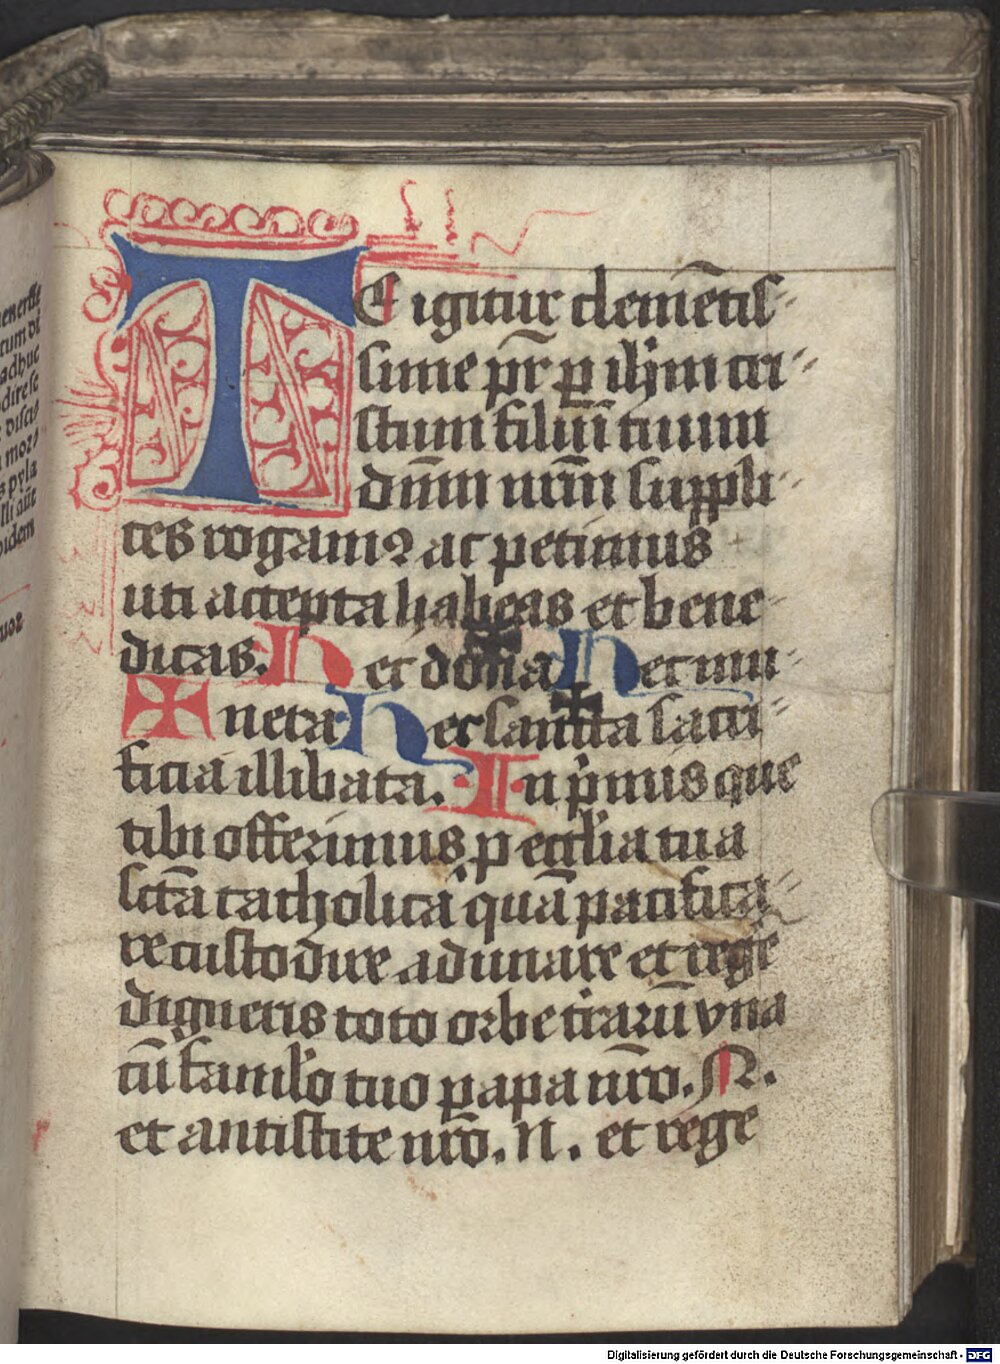 enerūt
tum di
adhuc
dire se
discis
mors
s pyla
lli aūt
bidem
TE igitur clemētis⸗
sime pr̄ ꝑ ihm̄ cri⸗
stum filiū tuum
dn̄m nr̄m suppli⸗
ces rogamꝰ ac petimus
uti accepta habeas et bene⸗
dicas. Hec dona Hec mu⸗
✠ nera Hec sancta sacri⸗
ficia illibata. In pͥmis que
tibi offerimus ꝓ eccl̓ia tua
sctā catholica quā pacifica⸗
re custodire adunare et rege̅
digneris toto orbe tͬrarū vna
cū famul̓o tuo papa nr̄o. N.
et antistite nr̄o. N. et rege
Digitalisierung gefördert durch die Deutsche Forschungsgemeinschaft - DFG